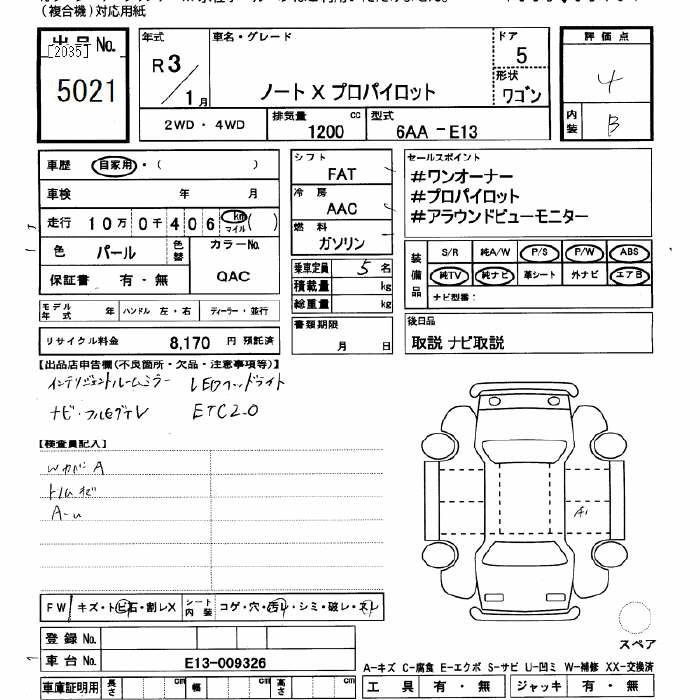 (複合機)対応用紙
出品 No.
[2035]
5021
年式
R3/1月
車名・グレード
ノート X プロパイロット
ドア
5
形状
ワゴン
2WD・4WD
排気量 cc
1200
型式
6AA -E13
評価点
4
内装
B
車歴 自家用・( )
車検 年 月
走行 10万0千406 km マイル ( )
色 パール 色替 カラーNo. QAC
保証書 有・無
モデル年式 年 ハンドル 左・右 ディーラー・並行
リサイクル料金 8,170 円 預託済
シフト
FAT
冷房
AAC
燃料
ガソリン
乗車定員 5 名
積載量 kg
総重量 kg
書類期限
月 日
セールスポイント
#ワンオーナー
#プロパイロット
#アラウンドビューモニター
装備品
S/R 純A/W P/S P/W ABS
純TV 純ナビ 革シート 外ナビ エアB
ナビ型番:
後日品
取説 ナビ取説
【出品店申告欄(不良箇所・欠品・注意事項等)】
インテリジェントルームミラー LEDヘッドライト
ナビ・フルセグTV ETC2.0
【検査員記入】
A
A-u
A1
FW キズ・トビ石・割レX シート内装 コゲ・穴・汚レ・シミ・破レ・スレ
登録 No.
車台 No. E13-009326
車庫証明用 長さ cm 幅 cm 高さ cm
スペア
A-キズ C-腐食 E-エクボ S-サビ U-凹ミ W-補修 XX-交換済
工具 有・無 ジャッキ 有・無